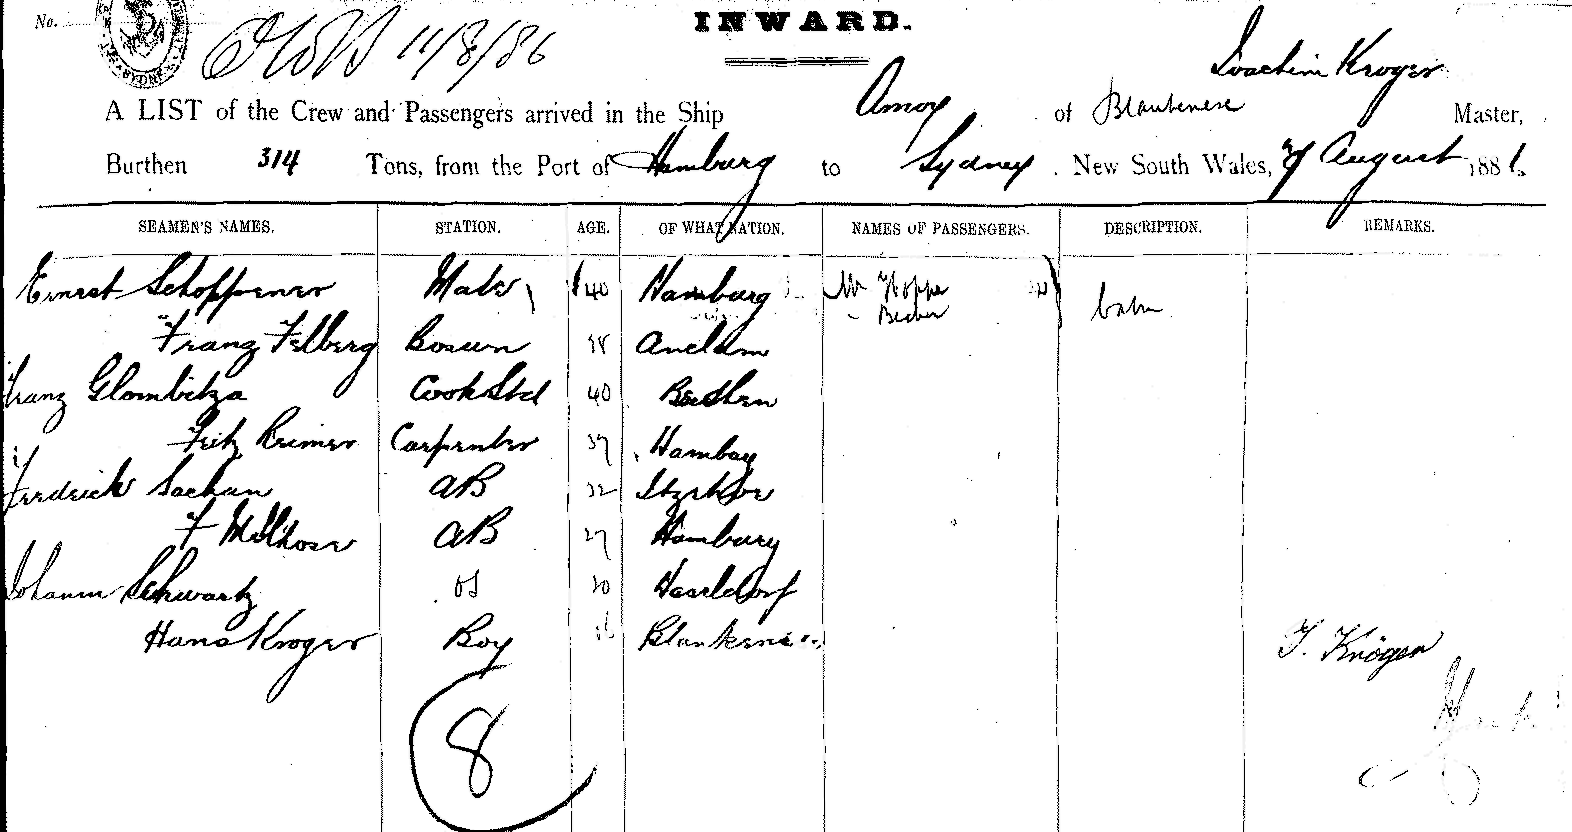 No.
INWARD.
11/8/86
Joachim Kroger
A LIST of the Crew and Passengers arrived in the Ship Amoy of Blankenese Master,
Burthen 314 Tons, from the Port of Hamburg to Sydney. New South Wales, 7 August 1886
SEAMEN'S NAMES. STATION. AGE. OF WHAT NATION. NAMES OF PASSENGERS. DESCRIPTION. REMARKS.
Ernest Schoppener Mate 40 Hamburg Mr Hoppe
Becker Cabin
Franz Felberg Bosun 38 Anclam
Franz Glombitza Cook Std 40 Beuthen
Fritz Reimer Carpenter 39 Hambug
Fredrick Sachau AB 32 Itzehoe
F Melthose AB 27 Hamburg
Johann Schwartz OS 20 Haseldorf
Hans Kroger Boy 16 Blankenese
J. Kröger
8